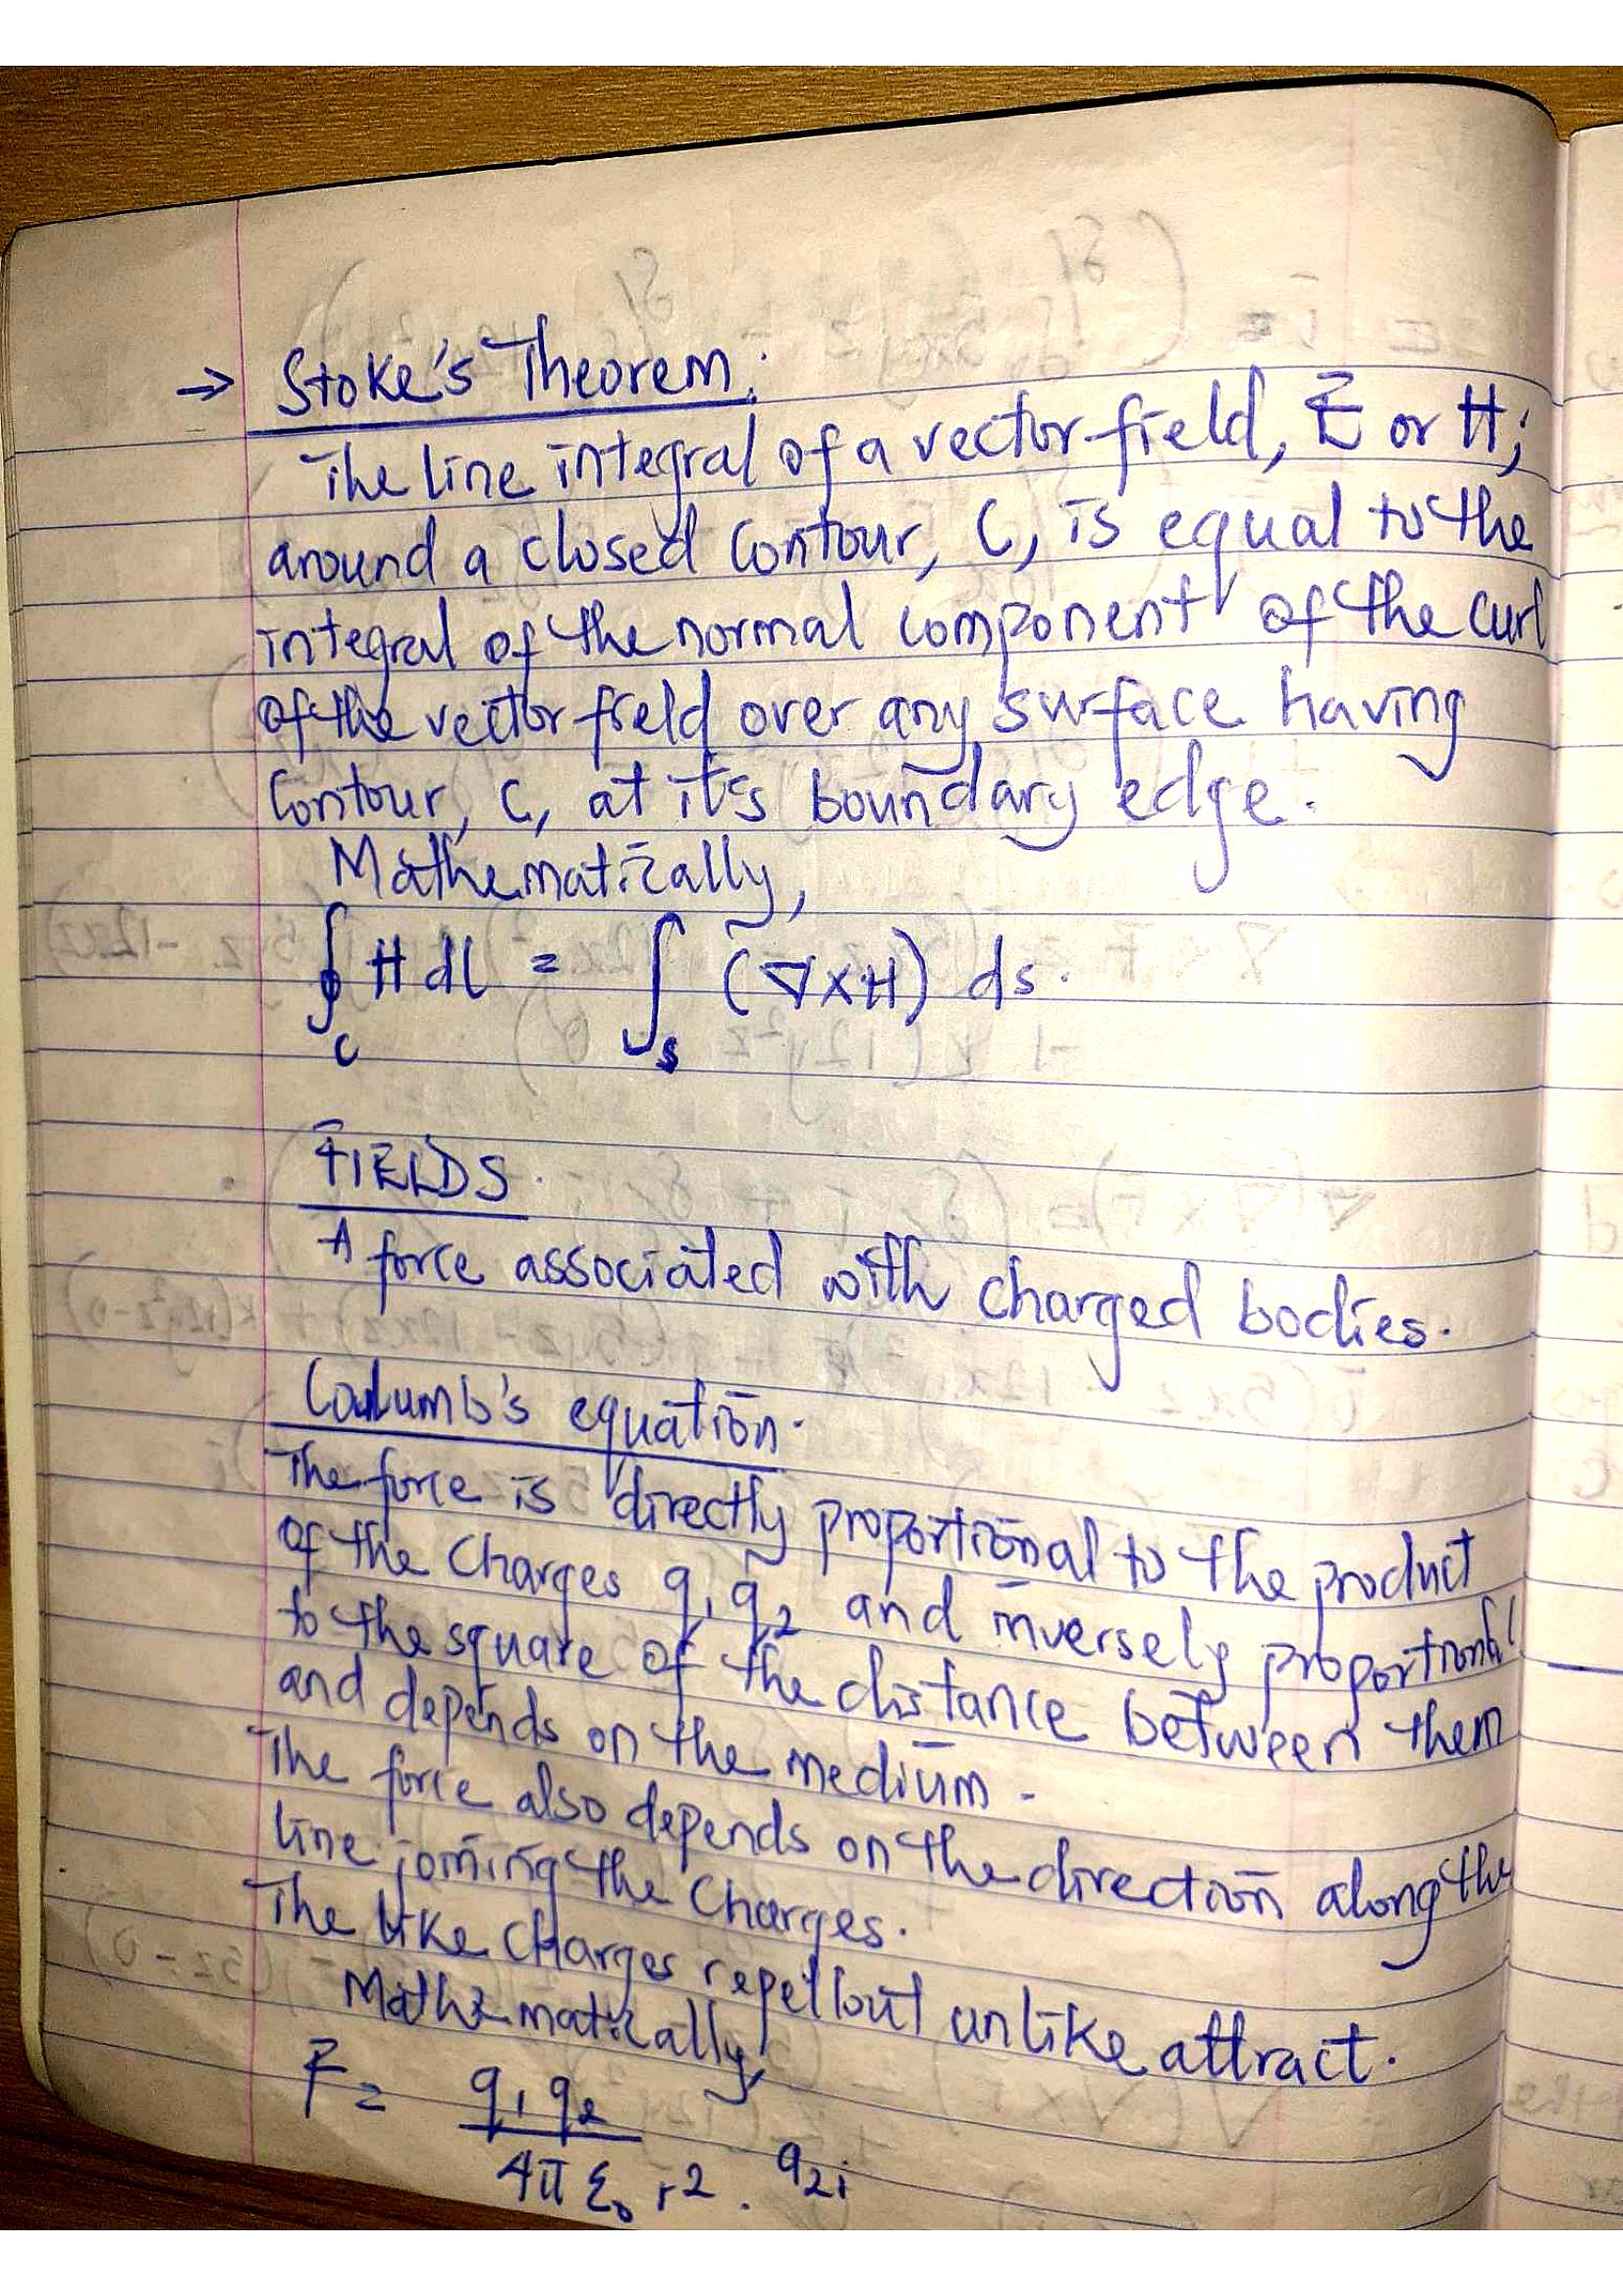 → Stoke's Theorem:
The line integral of a vector field, E or H;
around a closed contour, C, is equal to the
integral of the normal component of the curl
of the vector field over any surface having
Contour, C, at it's boundary edge.
Mathematically,
∮c H dl = ∫s (∇×H) ds.
FIELDS.
A force associated with charged bodies.
Coulumb's equation.
The force is directly proportional to the product
of the charges q1q2 and inversely proportional
to the square of the distance between them
and depends on the medium.
The force also depends on the direction along the
line joining the charges.
The like charges repel but unlike attract.
Mathematically,
F = q1q2 / 4π ε0 r2 . a2i